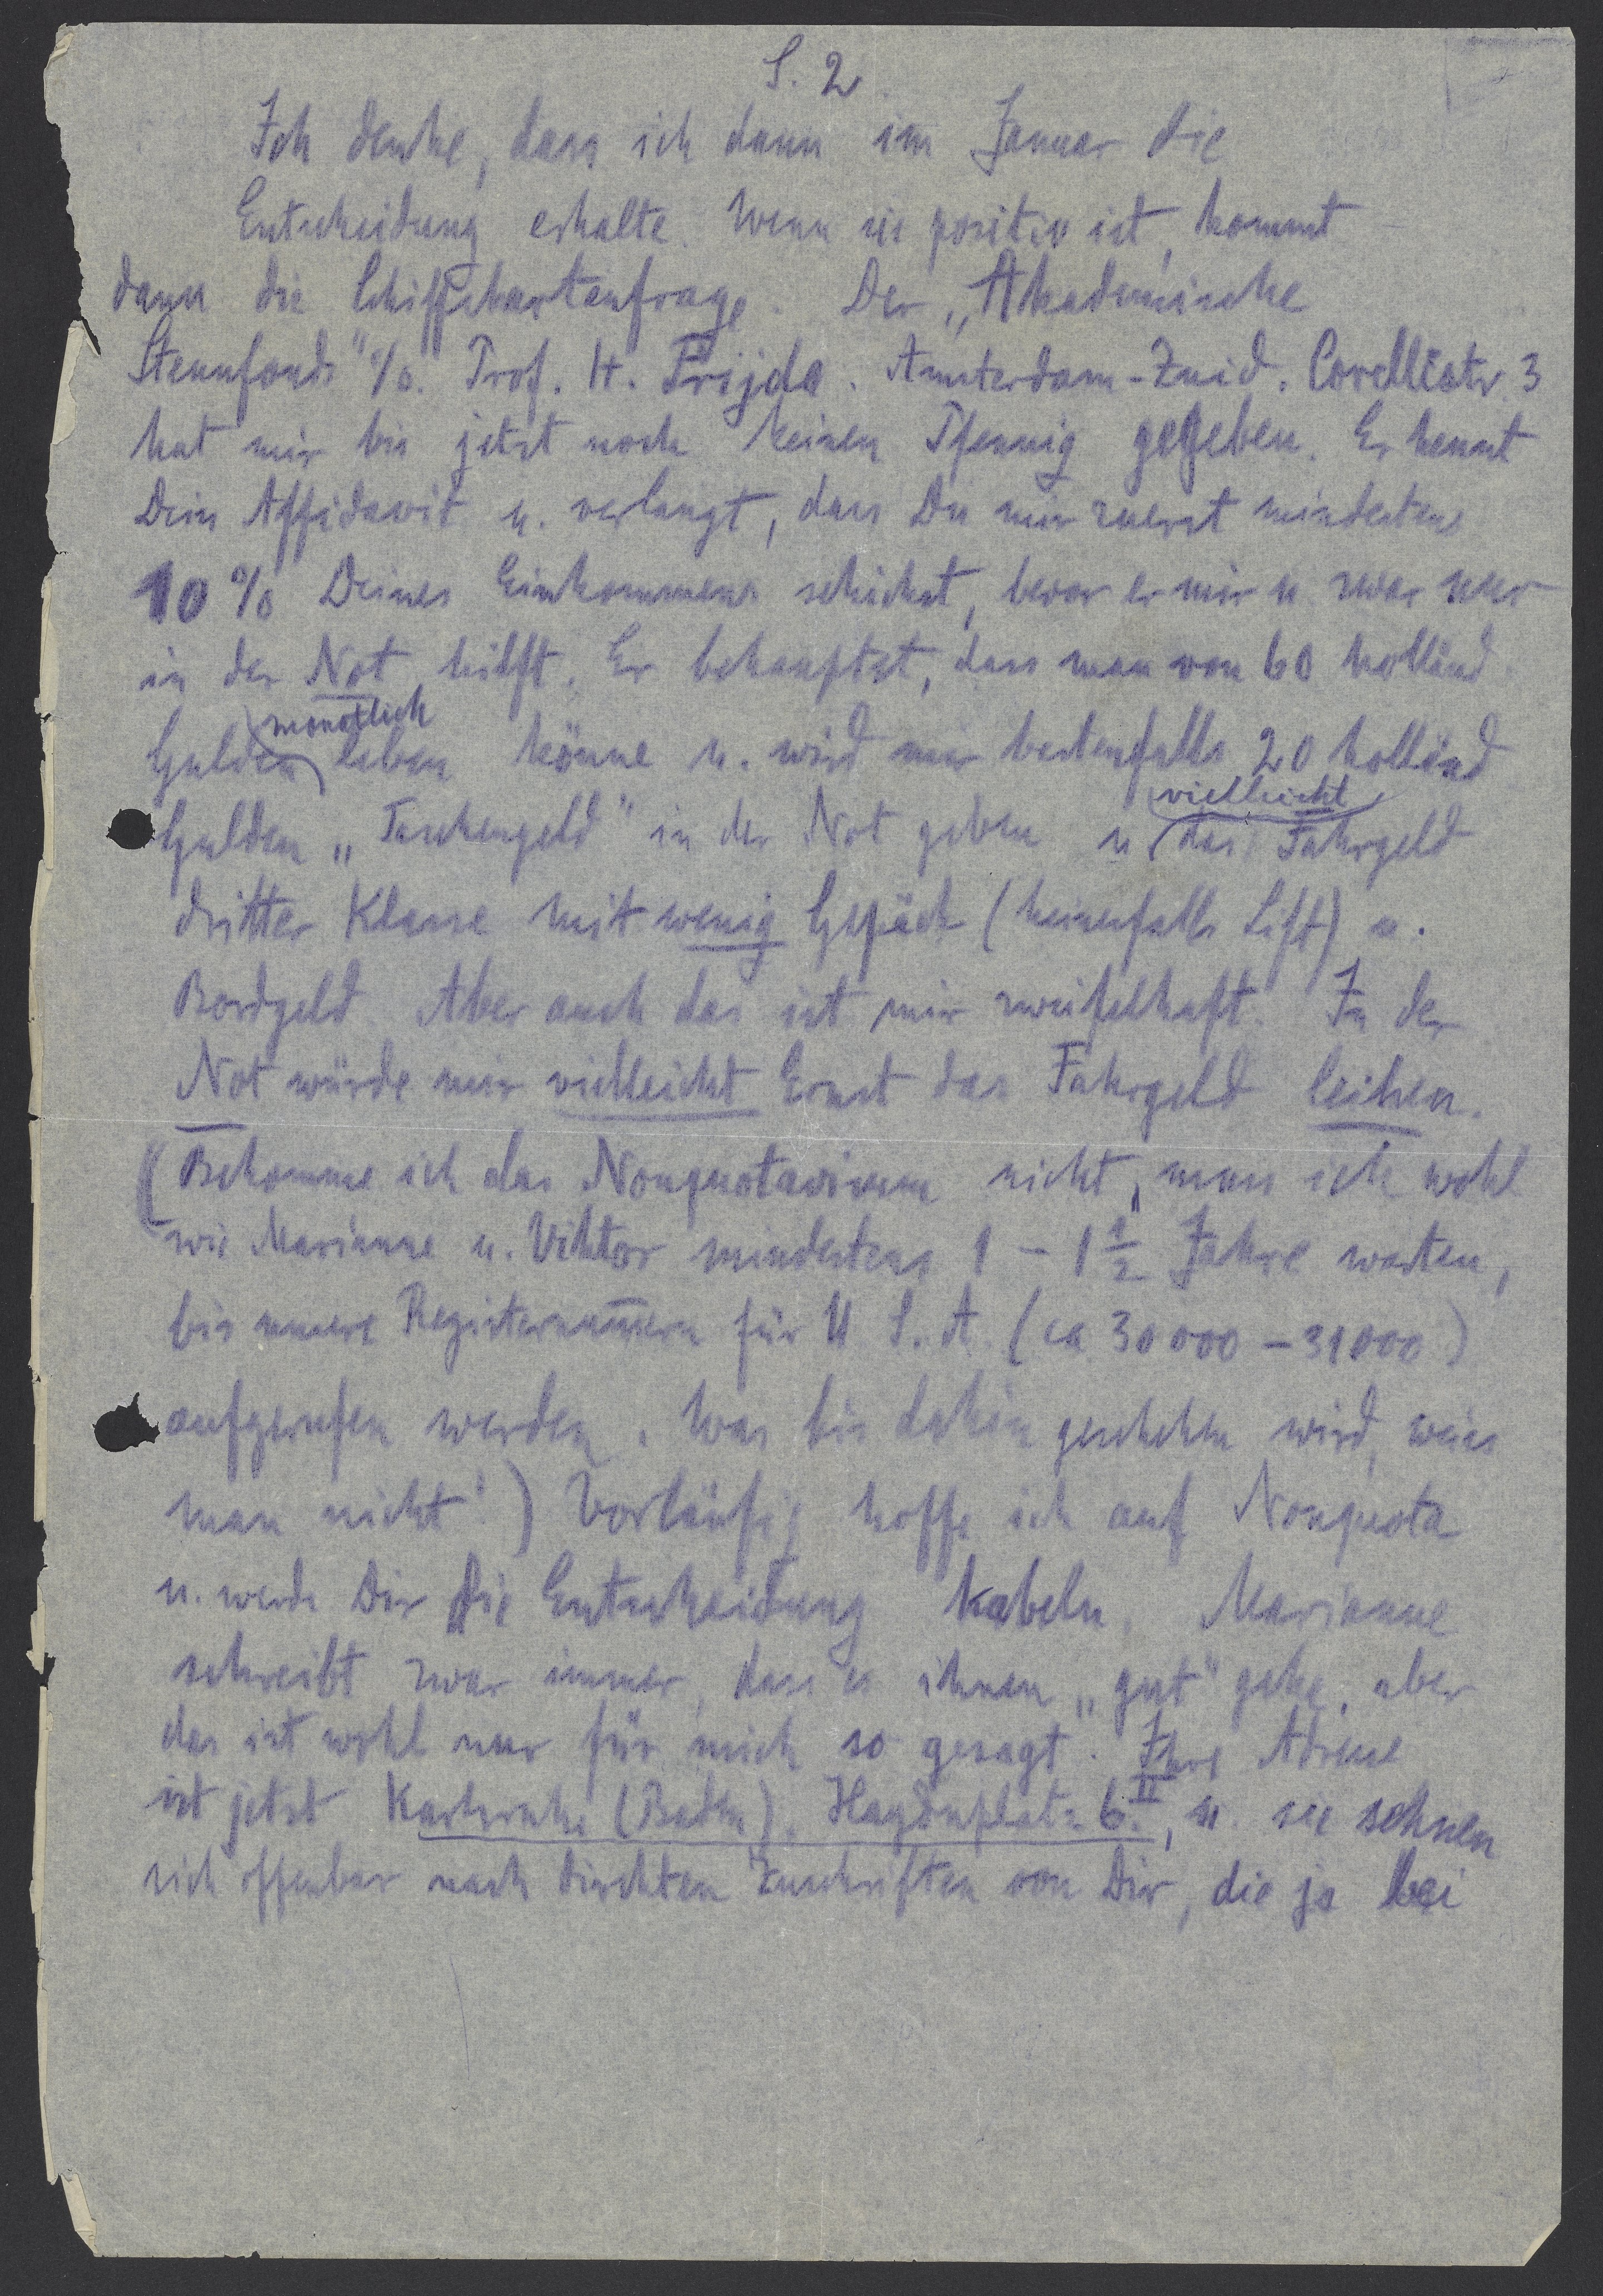 S. 2
Ich denke, dass ich dann im Januar die
Entscheidung erhalte. Wenn sie positiv ist, kommt
dann die Schiffskartenfrage. Der „Akademische
Steunfonds" c/o. Prof. H. Frijda. Amsterdam-Zuid. Corellistr. 3
hat mir bis jetzt noch keinen Pfennig gegeben. Er kennt
Dein Affidavit u. verlangt, dass Du mir zuerst mindestens
10 % Deines Einkommens schickst, bevor er mir u. zwar nur
in der Not hilft. Er behauptet, dass man von 60 holländ.
monatlich
Gulden leben könne u. wird mir bestenfalls 20 holländ
vielleicht
Gulden „Taschengeld" in der Not geben u. das Fahrgeld
dritter Klasse mit wenig Gepäck (keinesfalls Lift) u.
Bordgeld. Aber auch das ist mir zweifelhaft. In der
Not würde mir vielleicht Ernst das Fahrgeld leihen.
(Bekomme ich das Nonquotavisum nicht, muss ich wohl
wie Marianne u. Viktor mindestens 1 - 1 1/2 Jahre warten,
bis unsere Registernum̅ern für U. S. A. (ca 30000 - 31000)
aufgerufen werden. Was bis dahin geschehen wird, weiss
man nicht!) Vorläufig hoffe ich auf Nonquota
u. werde Dir die Entscheidung kabeln. Marianne
schreibt zwar immer, dass es ihnen „gut" gehe, aber
das ist wohl nur für mich so gesagt. Ihre Adresse
ist jetzt Karlsruhe (Baden). Haydnplatz 6. II, u. sie sehnen
sich offenbar nach direkten Zuschriften von Dir, die ja bei